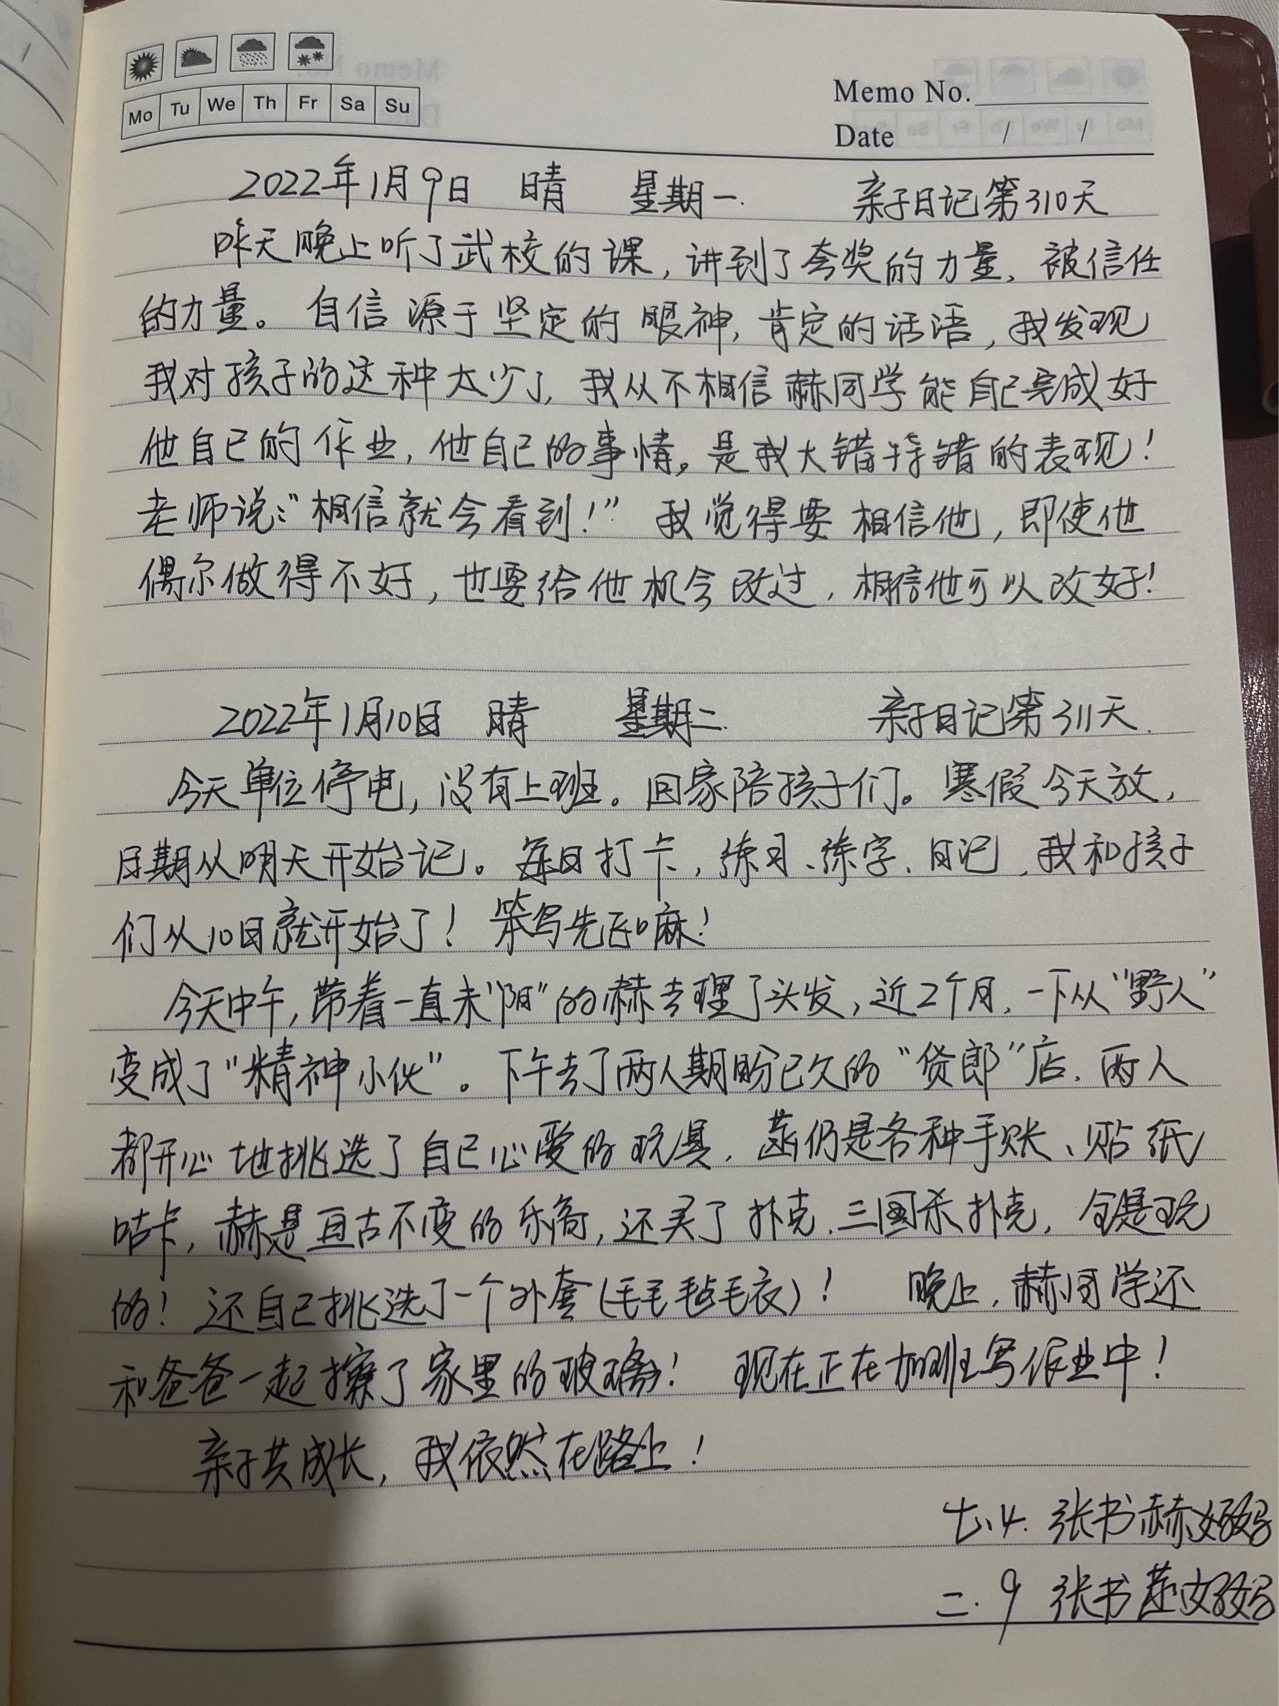 Mo Tu We Th Fr Sa Su
Memo No.
Date / /
2022年1月9日 晴 星期一. 亲子日记第310天
昨天晚上听了武校的课，讲到了夸奖的力量，被信任
的力量。自信源于坚定的眼神，肯定的话语，我发现
我对孩子的这种太少了，我从不相信赫同学能自己完成好
他自己的作业，他自己的事情。是我大错特错的表现！
老师说："相信就会看到！"我觉得要相信他，即使他
偶尔做得不好，也要给他机会改过，相信他可以改好！
2022年1月10日 晴 星期二. 亲子日记第311天.
今天单位停电，没有上班。回家陪孩子们。寒假今天放，
日期从明天开始记。每日打卡，练习、练字、日记，我和孩子
们从10日就开始了！笨鸟先飞嘛！
今天中午，带着一直未"阳"的赫去理了头发，近2个月，一下从"野人"
变成了"精神小伙"。下午去了两人期盼已久的"货郎"店，两人
都开心地挑选了自己心爱的玩具，菡仍是各种手账、贴纸
咕卡，赫是亘古不变的乐高，还买了扑克，三国杀扑克，全是玩
的！还自己挑选了一个外套(毛毛毡毛衣)！ 晚上，赫同学还
和爸爸一起擦了家里的玻璃！ 现在正在加班写作业中！
亲子共成长，我依然在路上！
七.4. 张书赫妈妈
二.9 张书菡妈妈